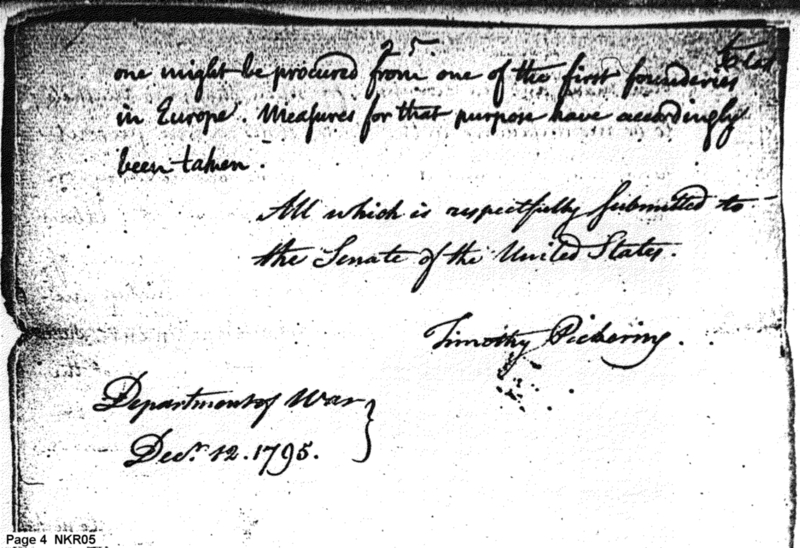 25.
one might be procured from one of the first founderies
in Europe. Measures for that purpose have accordingly
been taken.
All which is respectfully submitted to
the Senate of the United States.
Timothy Pickering.
Department of War
Decr. 12. 1795.
Page 4 NKR05